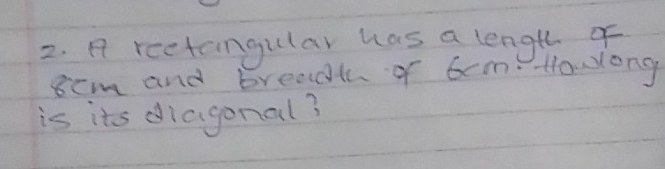 2. A rectangular has a length of
8cm and breadth of 6cm. How long
is its diagonal?